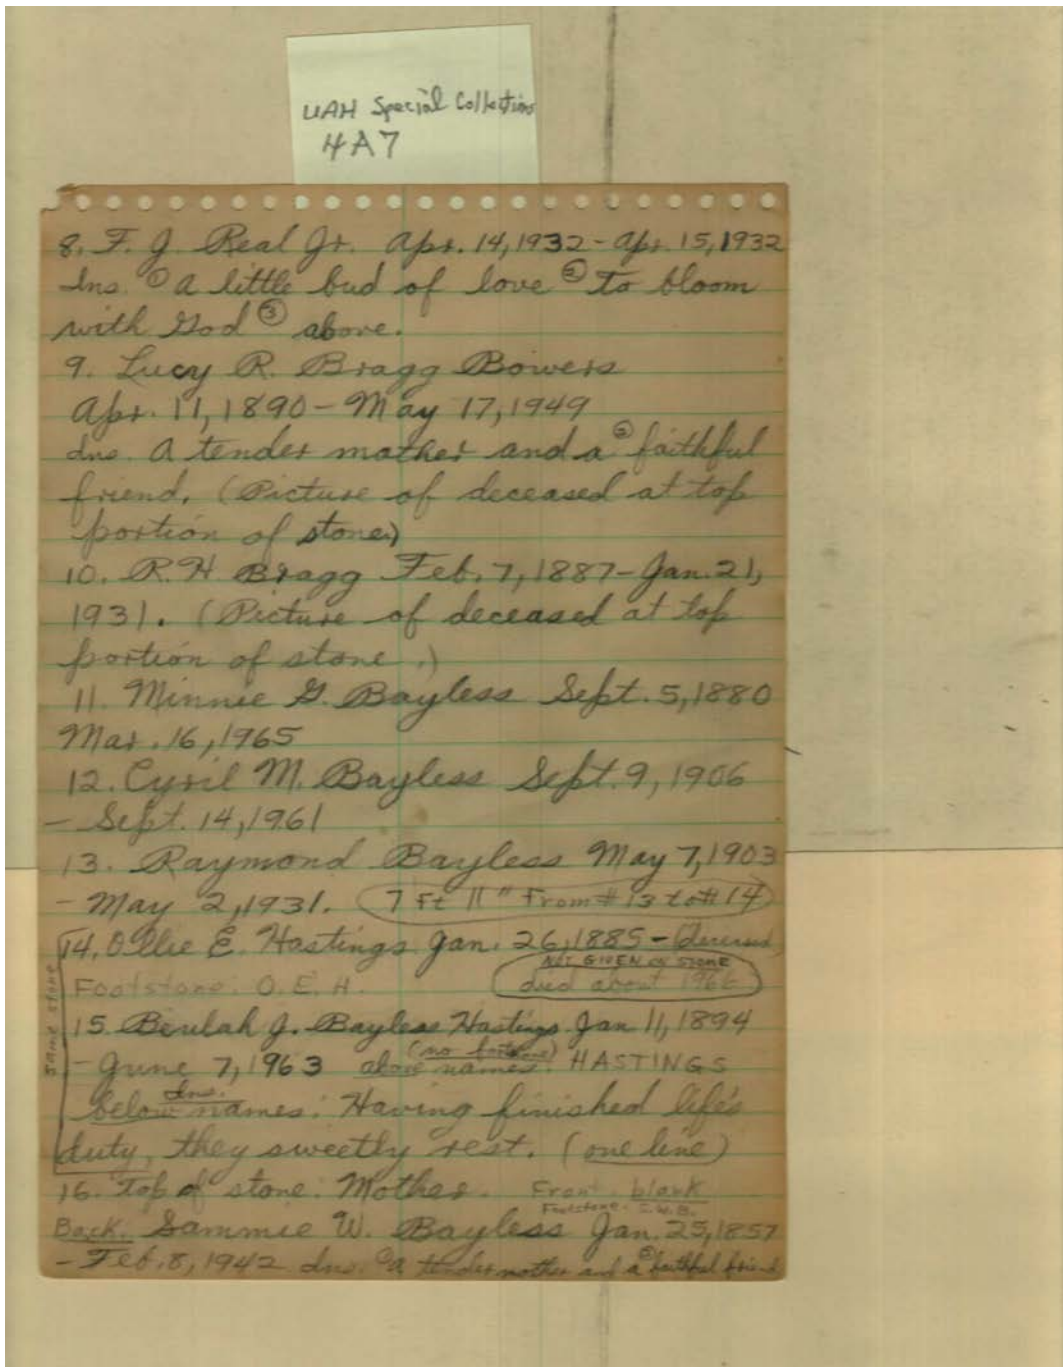 UAH Special Collections
4A7
8. F. J. Real Jr. Apr. 14, 1932 - Apr. 15, 1932
Ins. ① A little bud of love ② To bloom
with God ③ above.
9. Lucy R. Bragg Bowers
Apr. 11, 1890 - May 17, 1949
Ins. A tender mother and a ② faithful
friend. (Picture of deceased at top
portion of stone.)
10. R. H. Bragg Feb. 7, 1887 - Jan. 21,
1931. (Picture of deceased at top
portion of stone.)
11. Minnie G. Bayless Sept. 5, 1880
Mar. 16, 1965
12. Cyril M. Bayless Sept. 9, 1906
- Sept. 14, 1961
13. Raymond Bayless May 7, 1903
- May 2, 1931. 7 ft 11" From #13 to #14
14. Ollie E. Hastings Jan. 26, 1885 - Deceased
NOT GIVEN ON STONE
Footstone: O. E. H. died about 1966
same stone
15. Beulah J. Bayless Hastings Jan 11, 1894
(no footstone)
- June 7, 1963 above names: HASTINGS
Ins.
below names: Having finished life's
duty, they sweetly rest. (one line)
16. Top of stone: Mother. Front: blank
Footstone: S.W.B.
Back: Sammie W. Bayless Jan. 25, 1857
- Feb. 8, 1942 Ins. ① A tender mother and a ② faithful friend